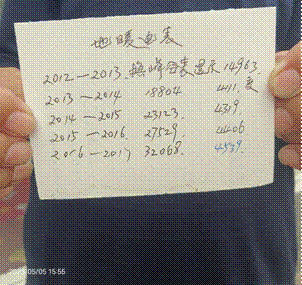 地暖电表
2012—2013 表显示 14963.
2013—2014 18804 411.度
2014—2015 23123. 4319.
2015—2016. 27529. 4406
2016—2017 32068. 4539.
05/05 15:55